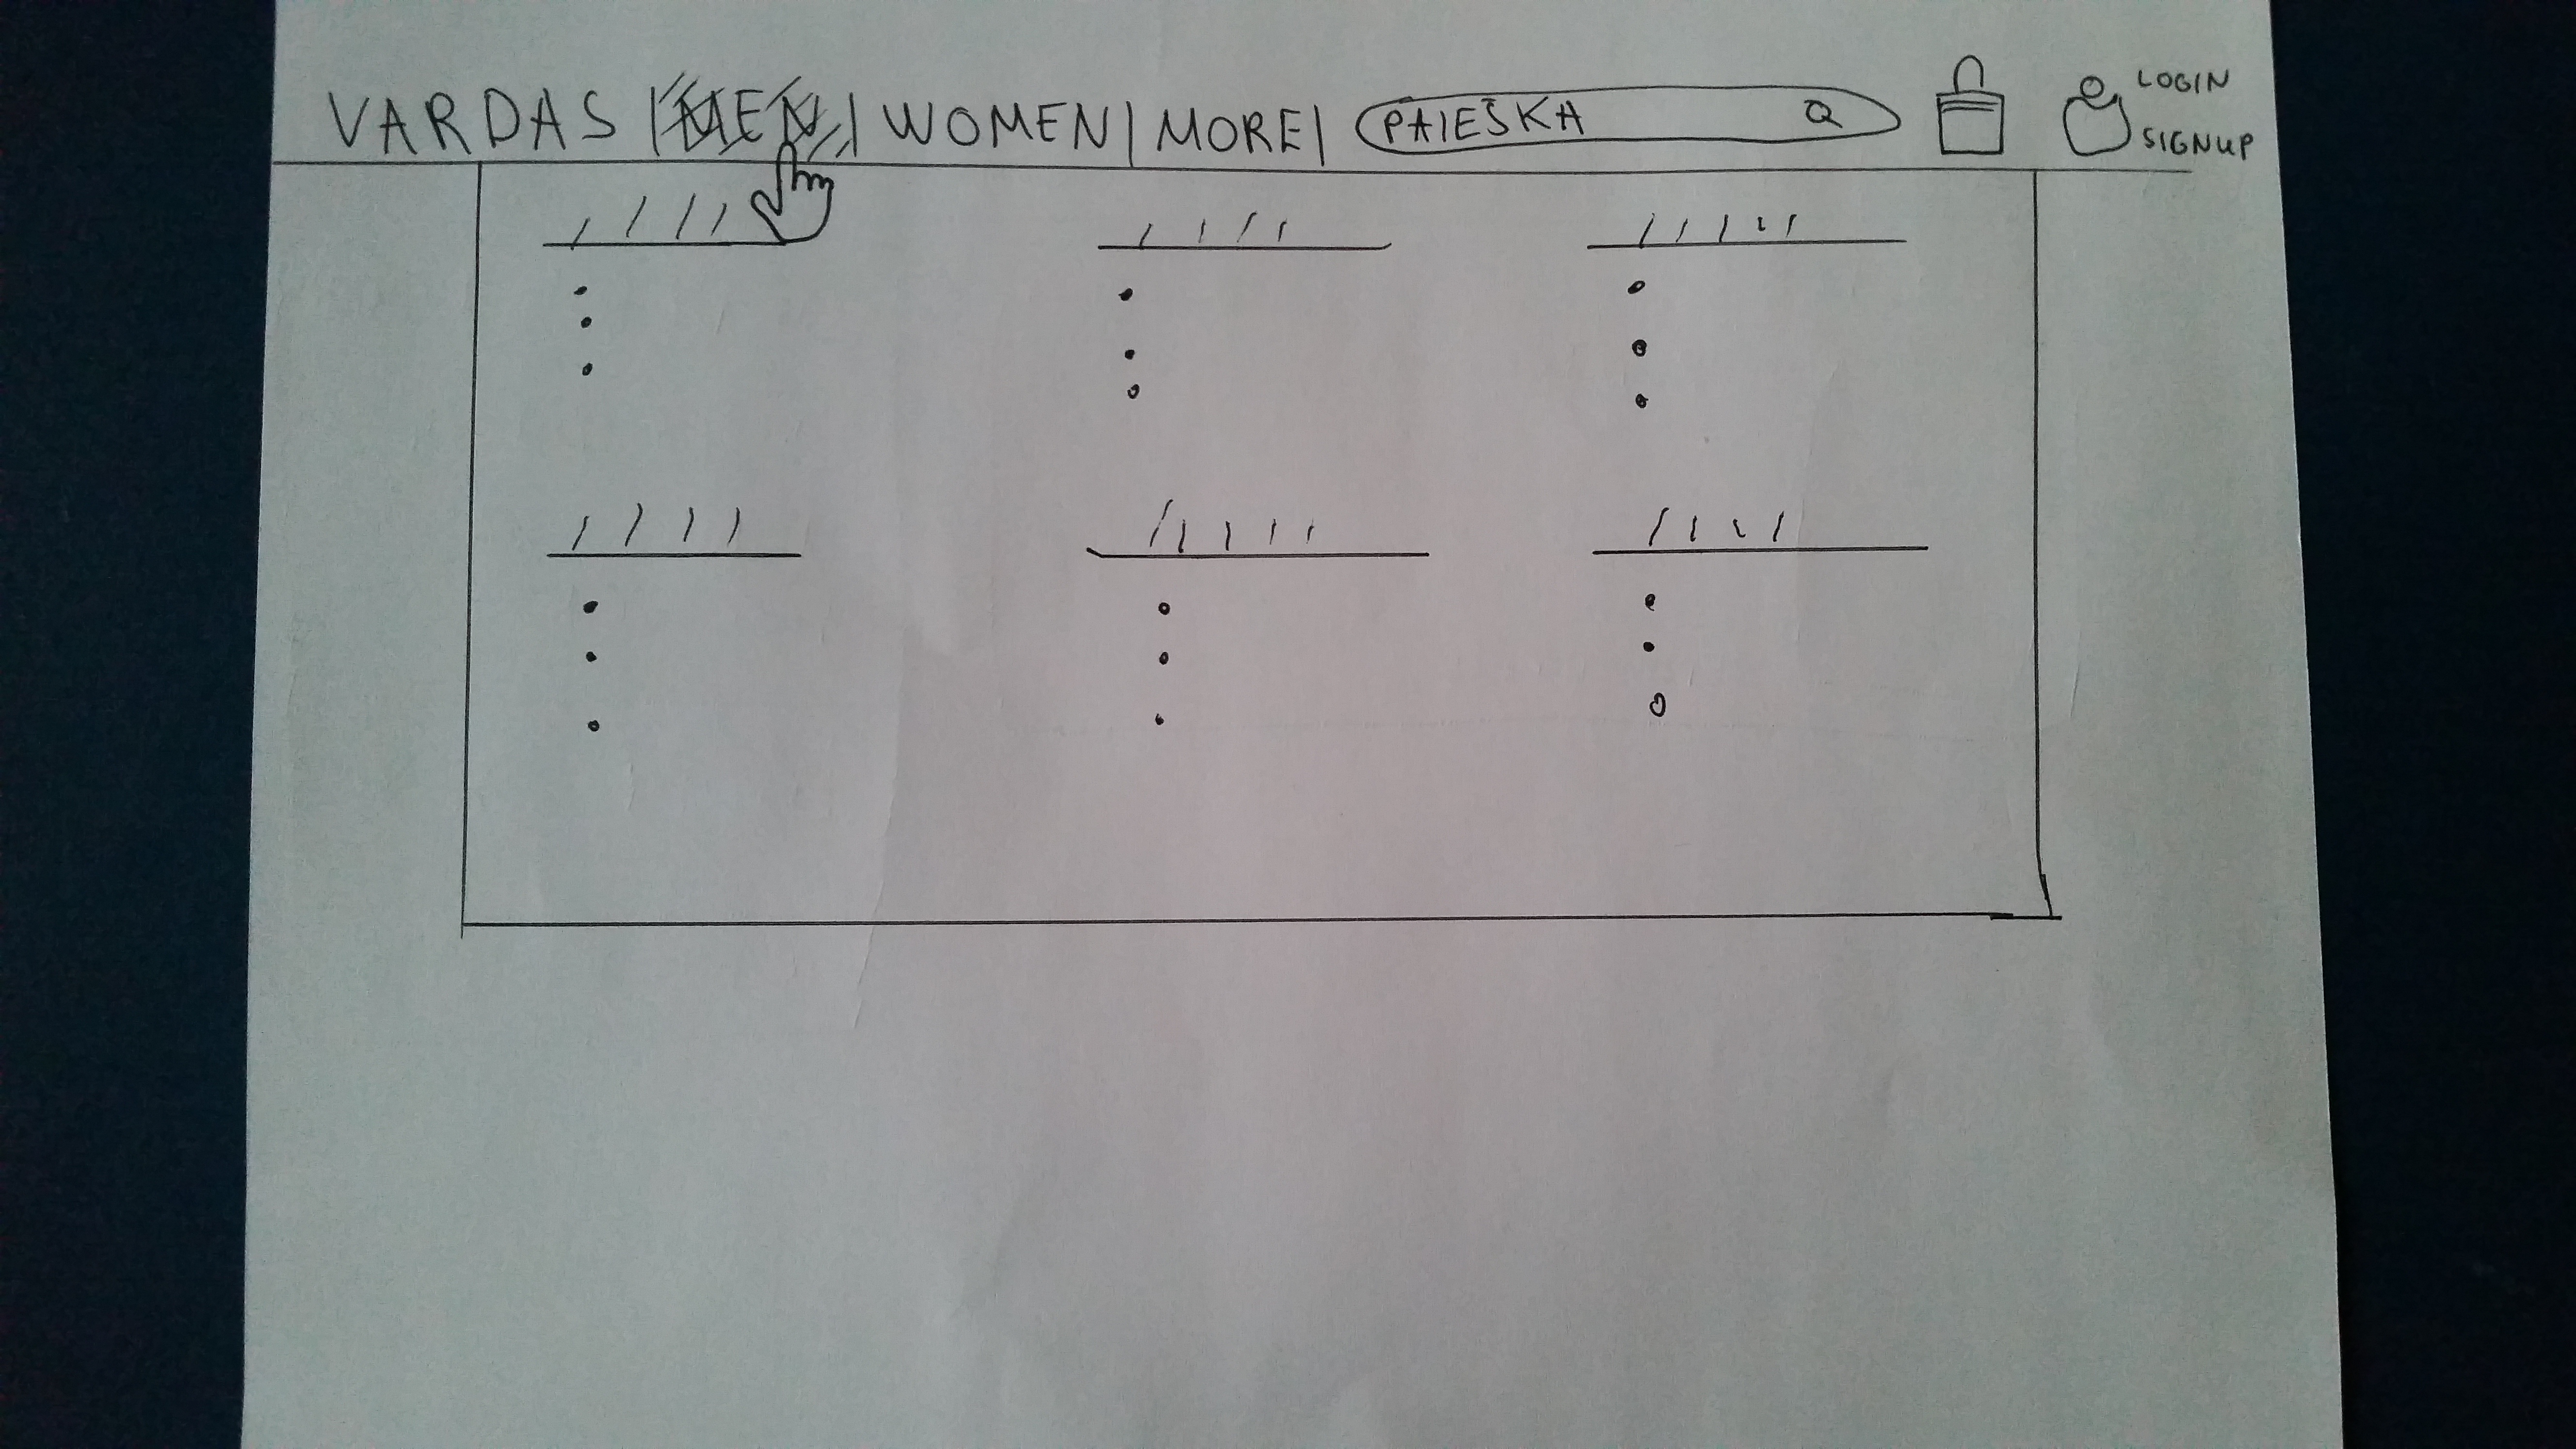 VARDAS | MEN | WOMEN | MORE | PAIEŠKA
LOGIN
SIGNUP